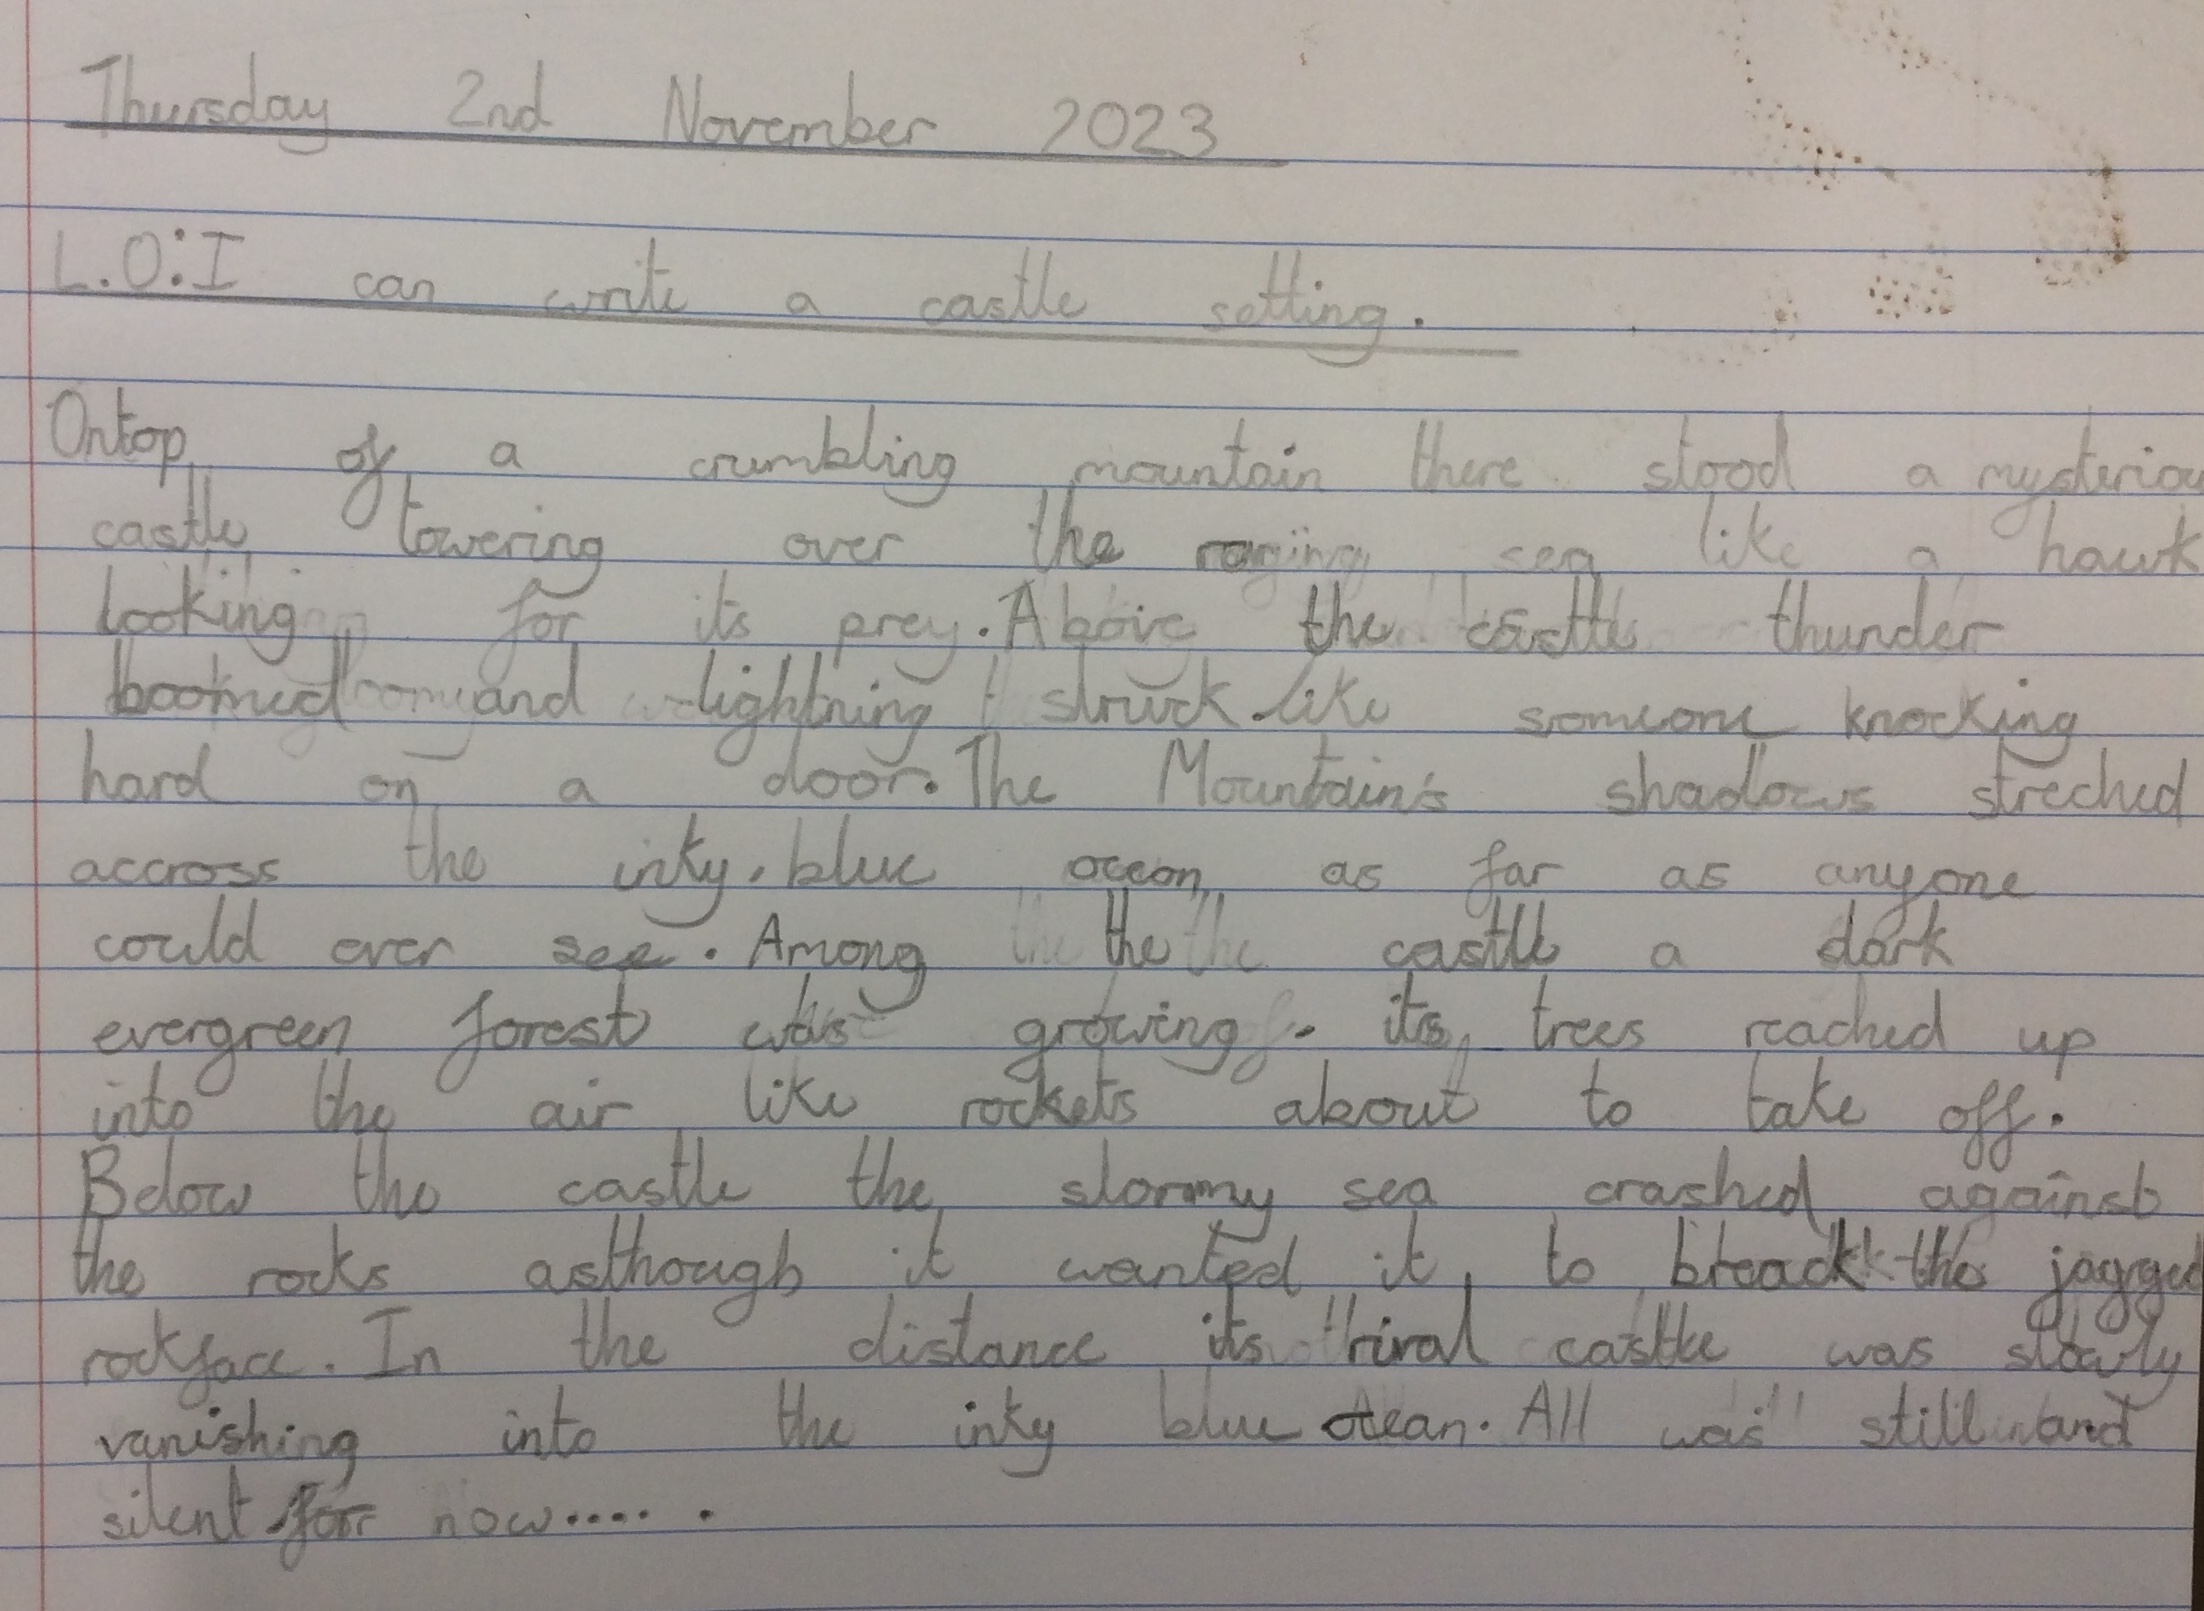 Thursday 2nd November 2023
L.O:I can write a castle setting.
Ontop of a crumbling mountain there stood a mysteriou
castle towering over the raging sea like a hawk
looking for its prey. Above the castle thunder
boomed and lightning struck like someone knocking
hard on a door. The Mountain's shadows streched
accross the inky, blue ocean as far as anyone
could ever see. Among the castle a dark
evergreen forest was growing. its trees reached up
into the air like rockets about to take off.
Below the castle the stormy sea crashed against
the rocks asthough it wanted it to break the jagged
rockface. In the distance its rival castle was slowly
vanishing into the inky blue ocean. All was still and
silent for now.....